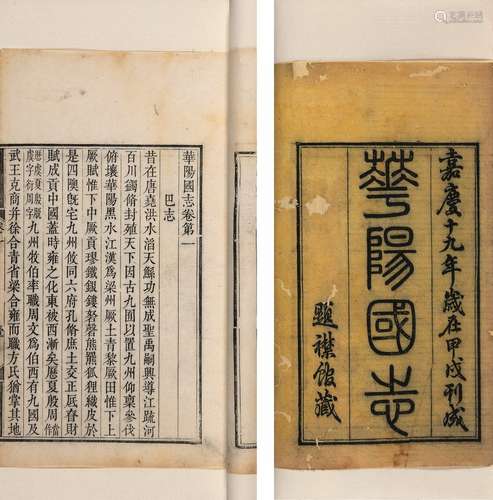 嘉慶十九年歲在甲戌刊成
華陽國志
題襟館藏
華陽國志卷第一
巴志
昔在唐堯洪水滔天鯀功無成聖禹嗣興導江疏河
百川蠲脩封殖天下因古九囿以置九州仰稟參伐
俯壤華陽黑水江漢爲梁州厥土青黎厥田惟下上
厥賦惟下中厥貢璆鐵銀鏤砮磬熊羆狐狸織皮於
是四隩旣宅九州攸同六府孔脩庶土交正厎愼財
賦成貢中國蓋時雍之化東被西漸矣歷夏殷周當作
九州牧伯率職周文爲伯西有九國及
武王克商并徐合青省梁合雍而職方氏猶掌其地